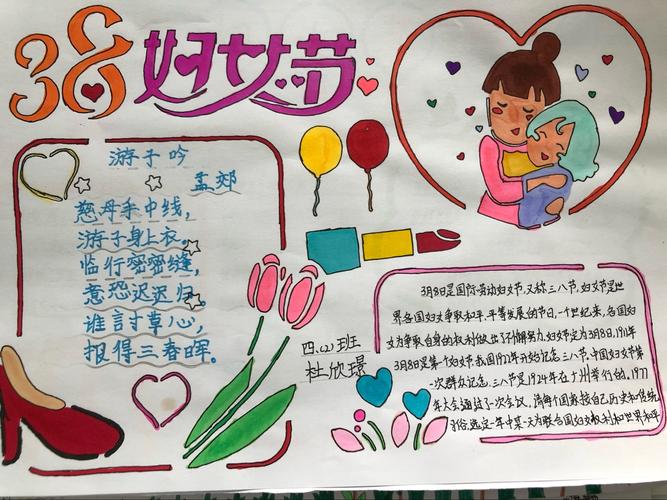 38妇女节
游子吟
孟郊
慈母手中线,
游子身上衣。
临行密密缝,
意恐迟迟归。
谁言寸草心,
报得三春晖。
四.(2)班
杜欣璟
3月8日是国际劳动妇女节,又称三八节,妇女节是世
界各国妇女争取和平、平等发展的节日,一个世纪来,各国妇
女为争取自身的权利做出了不懈努力.妇女定为3月8日,1911年
3月8日是第一个妇女节.我国1922年开始纪念三八节,中国妇女节第
一次群众纪念三八节是1924年在广州举行的.1977
年大会通过了一次会议,请每个国家按自己历史和传统
习俗,选定一年中某一天为联合国妇女权利和世界和平